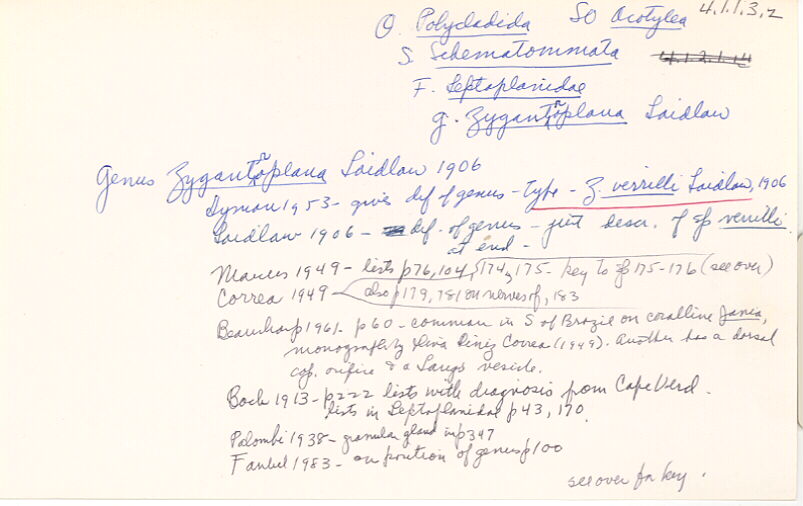 O. Polycladida SO Acotylea 4.1.1.3.2
S. Schematommata 4.1.2.1.14
F. Leptoplanidae
g. Zygantroplana Laidlaw
Genus Zygantroplana Laidlaw 1906
Hyman 1953 - give def of genus - type - Z verrilli Laidlaw, 1906
Laidlaw 1906 - def. of genus - just descr. of sp verrilli.
at end -
Marcus 1949 - lists p76, 104, 174, 175 - key to sp 175-176 (see over)
Correa 1949 - also p179, 181 on nerves of, 183
Beauchamp 1961 - p60 - common in S of Brazil on coralline Jania,
monograph by Diva Diniz Correa (1949). Another has a dorsal
cop. orifice & a Lang's vesicle.
Bock 1913 - p222 lists with diagnosis from Cape Verd.
lists in Leptoplanidae p43, 170.
Palombi 1938 - granular gland in p347
Faubel 1983 - on position of genus p100
see over for key.